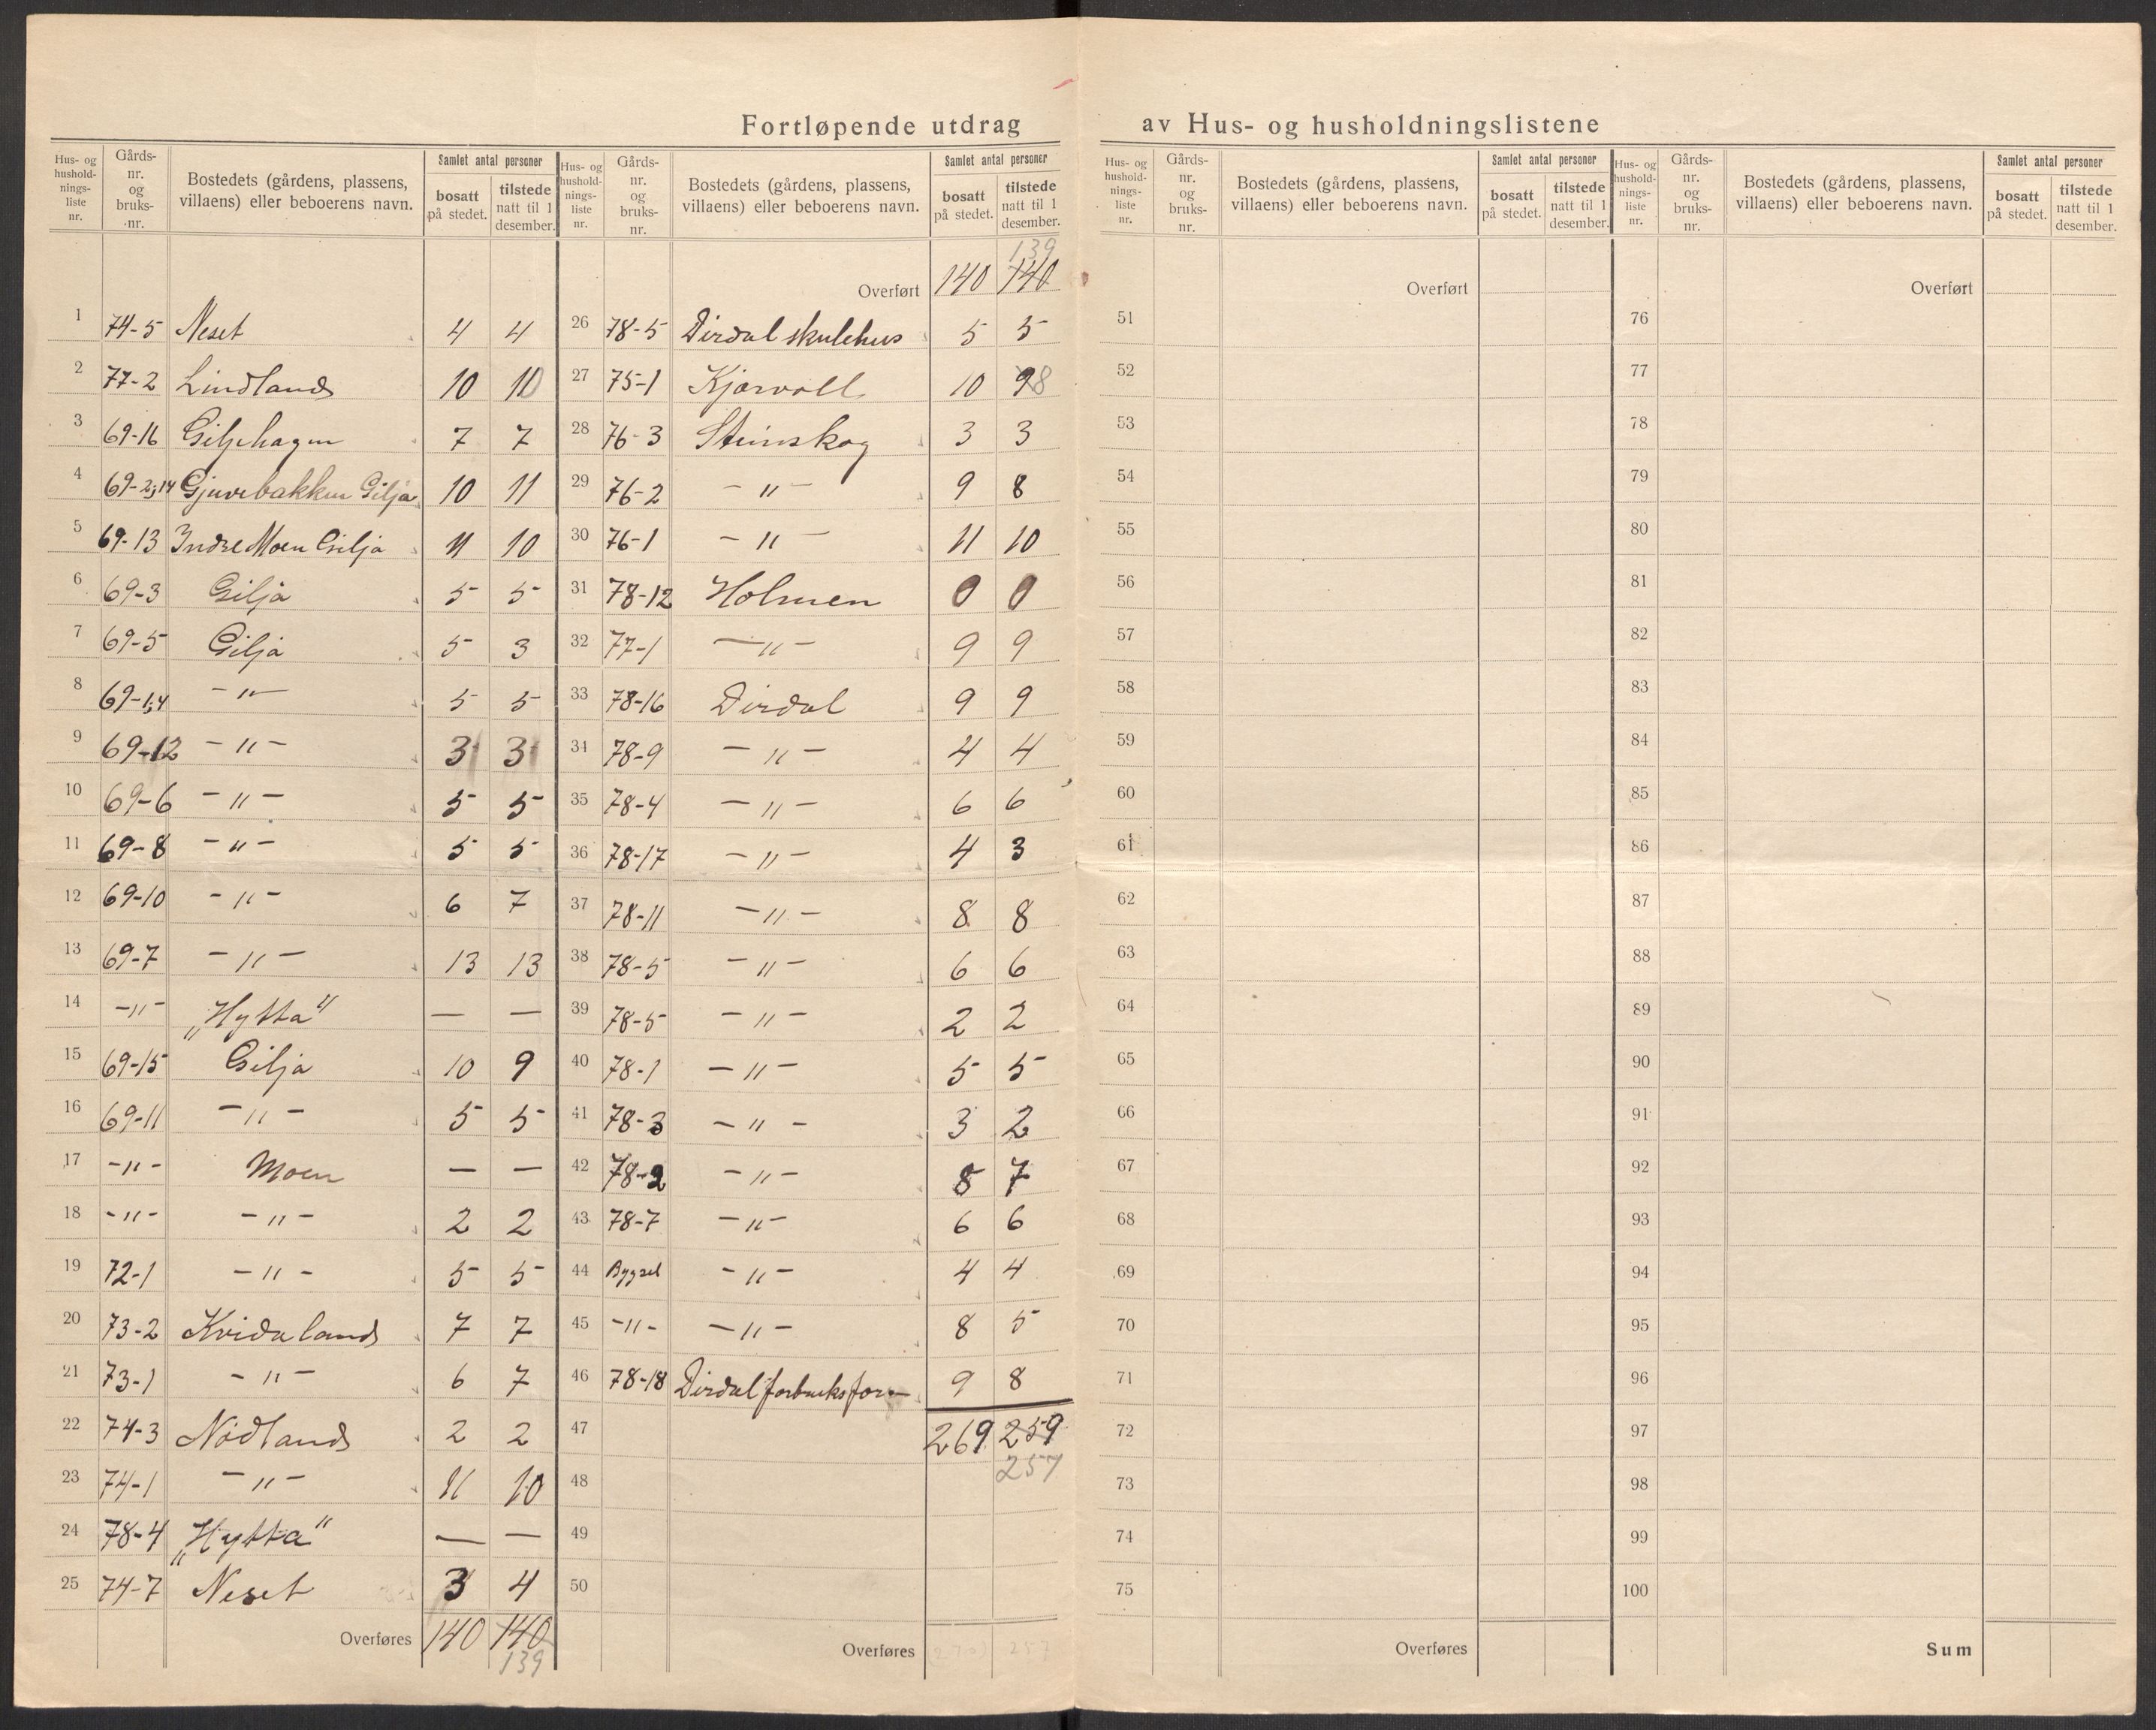 Fortløpende utdrag av Hus- og husholdningslistene
Hus- og husholdningsliste nr. | Gårds- nr. og bruks- nr. | Bostedets (gårdens, plassens, villaens) eller beboerens navn. | Samlet antal personer | bosatt på stedet. | tilstede natt til 1 desember.
1 74-5 Neset 4 4
2 77-2 Lindland 10 10
3 69-16 Giljehagen 7 7
4 69-2,14 Gjuvebakken Gilja 10 11
5 69-13 Indre Moen Gilja 11 10
6 69-3 Gilja 5 5
7 69-5 Gilja 5 3
8 69-1,4 -"- 5 5
9 69-12 -"- 3 3
10 69-6 -"- 5 5
11 69-8 -"- 5 5
12 69-10 -"- 6 7
13 69-7 -"- 13 13
14 -"- „Hytta" — —
15 69-15 Gilja 10 9
16 69-11 -"- 5 5
17 -"- Moen — —
18 -"- -"- 2 2
19 72-1 -"- 5 5
20 73-2 Kvidaland 7 7
21 73-1 -"- 6 7
22 74-3 Nödland 2 2
23 74-1 -"- 11 10
24 78-4 „Hytta" — —
25 74-7 Neset 3 4
Overføres 140 140
139
Hus- og husholdningsliste nr. | Gårds- nr. og bruks- nr. | Bostedets (gårdens, plassens, villaens) eller beboerens navn. | Samlet antal personer | bosatt på stedet. | tilstede natt til 1 desember.
139
Overført 140 140
26 78-5 Dirdal skulehus 5 5
27 75-1 Kjørvoll 10 9 8
28 76-3 Steinskog 3 3
29 76-2 -"- 9 8
30 76-1 -"- 11 10
31 78-12 Holmen 0 0
32 77-1 -"- 9 9
33 78-16 Dirdal 9 9
34 78-9 -"- 4 4
35 78-4 -"- 6 6
36 78-17 -"- 4 3
37 78-11 -"- 8 8
38 78-5 -"- 6 6
39 78-5 -"- 2 2
40 78-1 -"- 5 5
41 78-3 -"- 3 2
42 78-2 -"- 8 7
43 78-7 -"- 6 6
44 Bygsel -"- 4 4
45 -"- -"- 8 5
46 78-18 Dirdal forbruksfor- 9 8
47 269 259
257
48
49
50
Overføres 257
Hus- og husholdningsliste nr. | Gårds- nr. og bruks- nr. | Bostedets (gårdens, plassens, villaens) eller beboerens navn. | Samlet antal personer | bosatt på stedet. | tilstede natt til 1 desember.
Overført
51
52
53
54
55
56
57
58
59
60
61
62
63
64
65
66
67
68
69
70
71
72
73
74
75
Overføres
Hus- og husholdningsliste nr. | Gårds- nr. og bruks- nr. | Bostedets (gårdens, plassens, villaens) eller beboerens navn. | Samlet antal personer | bosatt på stedet. | tilstede natt til 1 desember.
Overført
76
77
78
79
80
81
82
83
84
85
86
87
88
89
90
91
92
93
94
95
96
97
98
99
100
Sum